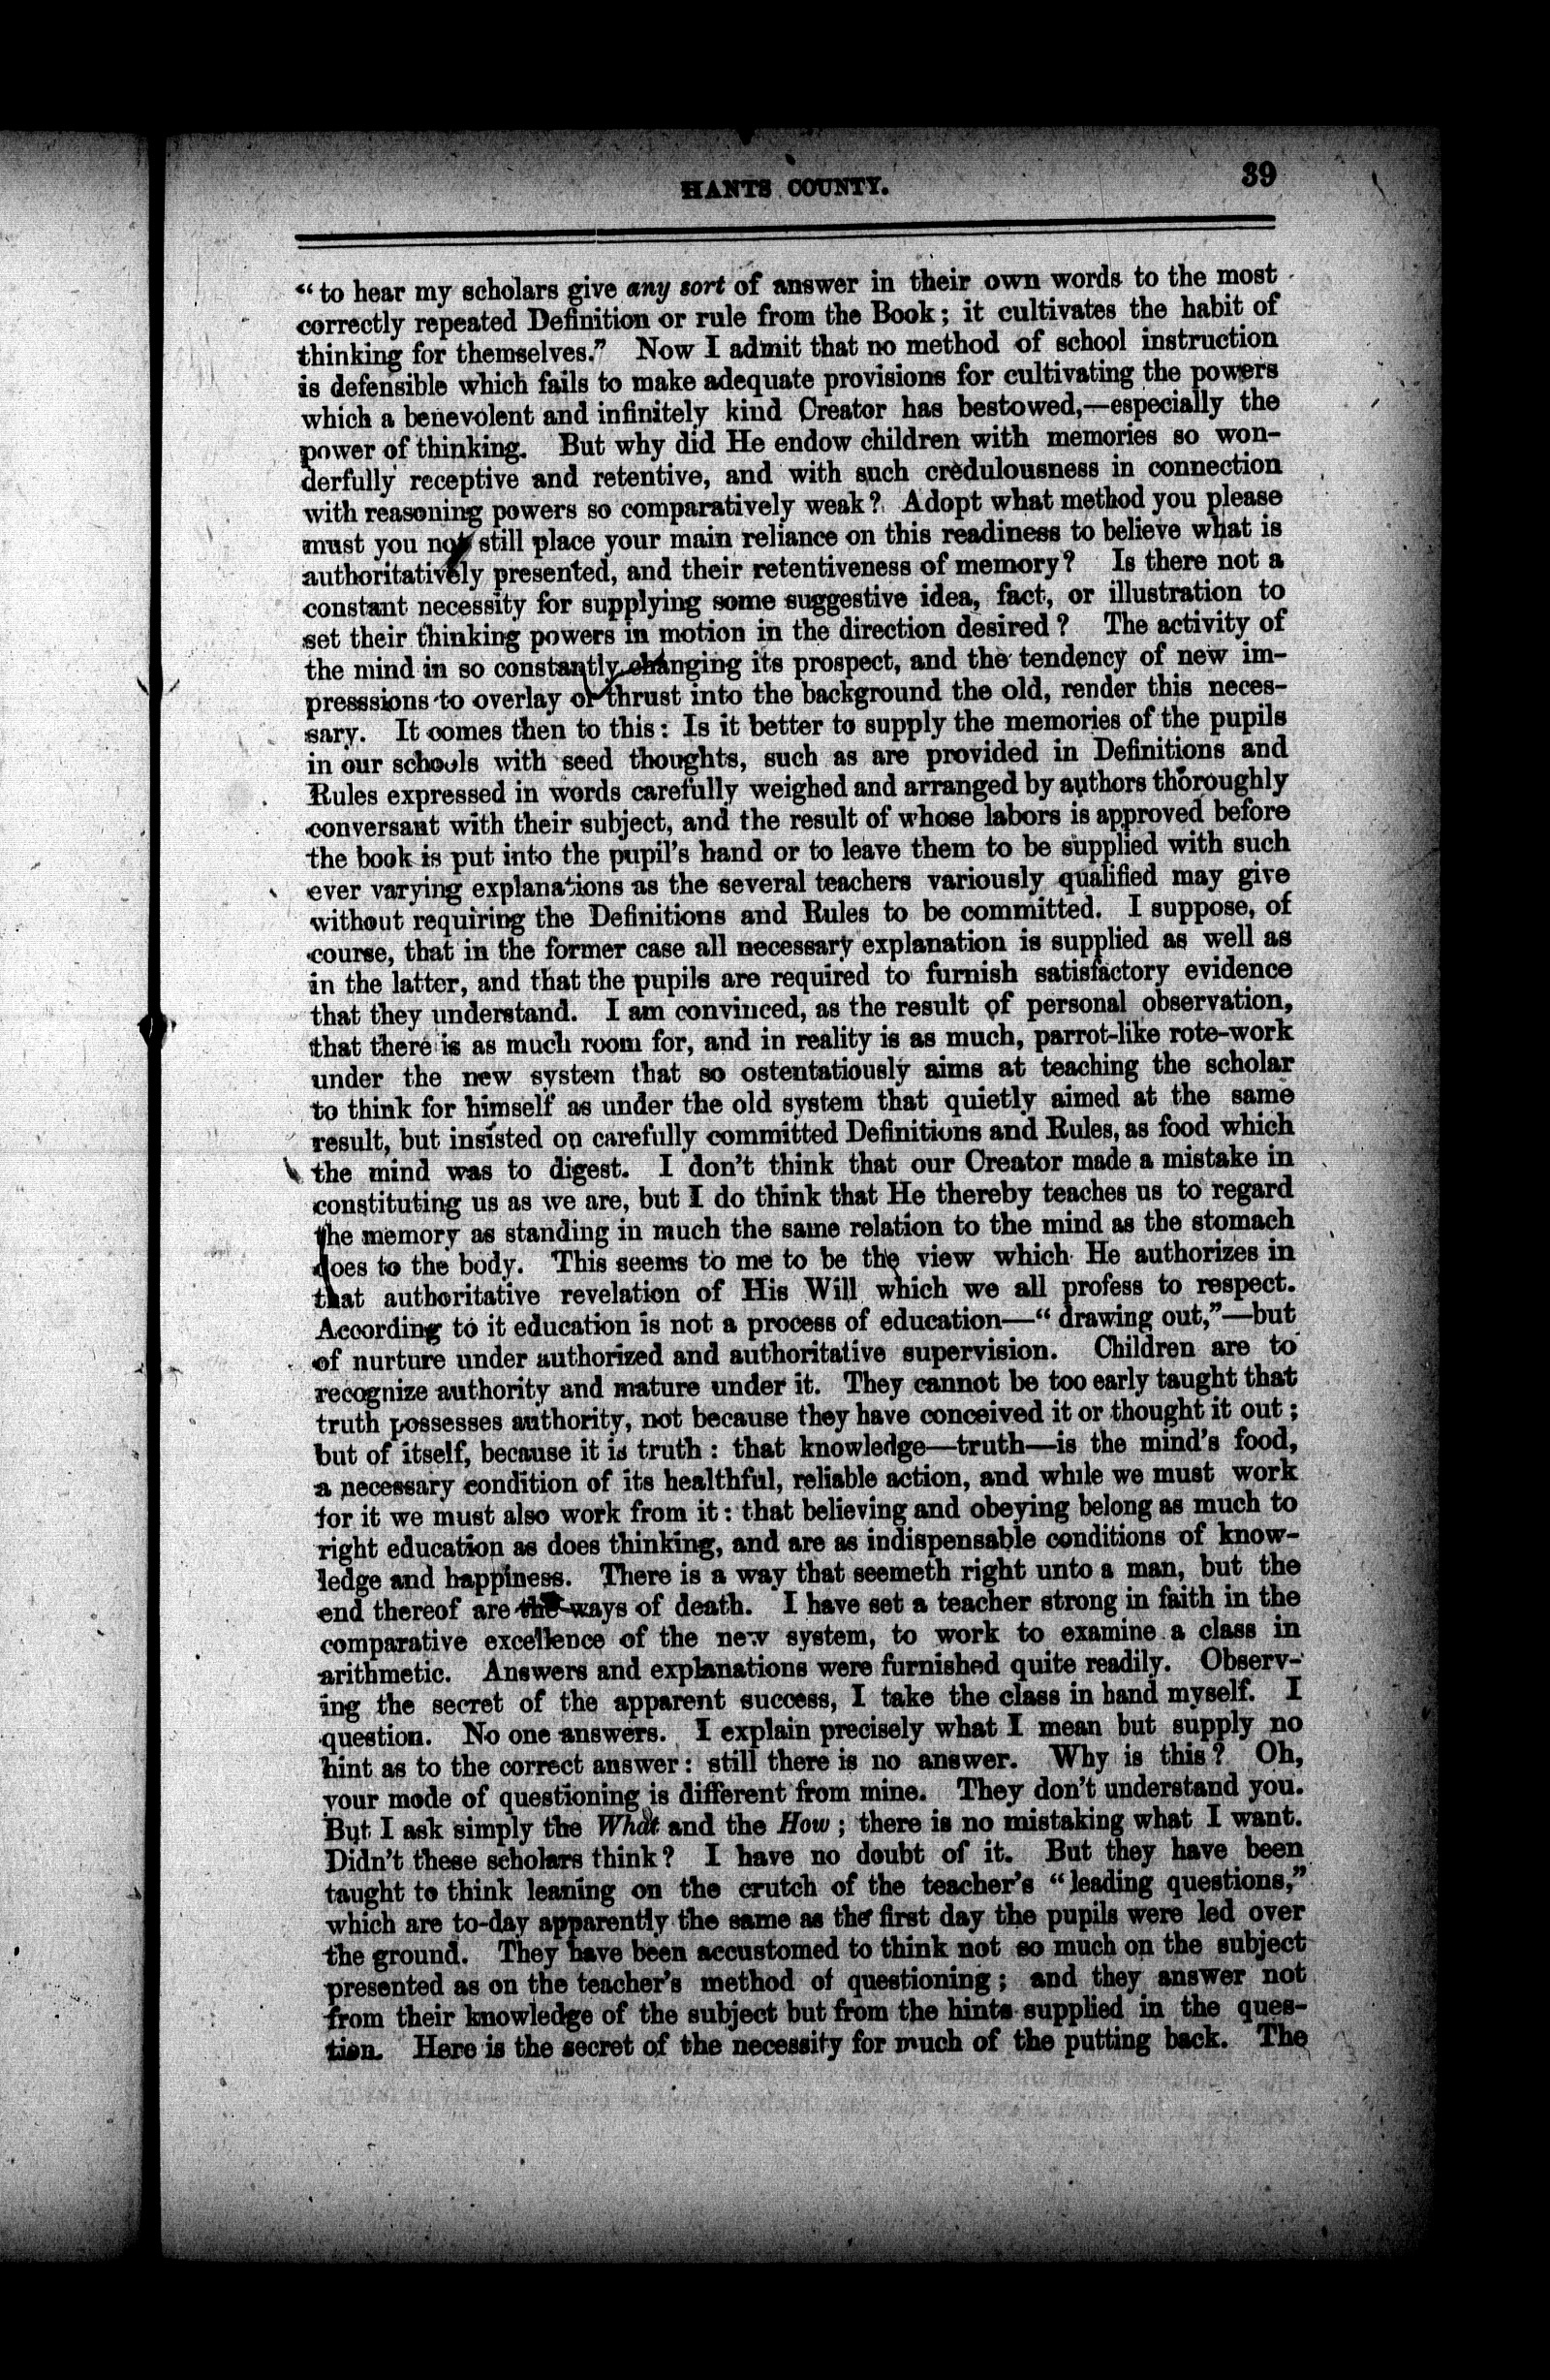 HANTS COUNTY.
39
“to hear my scholars give any sort of answer in their own words to the most
correctly repeated Definition or rule from the Book; it cultivates the habit of
thinking for themselves.” Now I admit that no method of school instruction
is defensible which fails to make adequate provisions for cultivating the powers
which a benevolent and infinitely kind Creator has bestowed,—especially the
power of thinking. But why did He endow children with memories so won-
derfully receptive and retentive, and with such credulousness in connection
with reasoning powers so comparatively weak? Adopt what method you please
must you not still place your main reliance on this readiness to believe what is
authoritatively presented, and their retentiveness of memory? Is there not a
constant necessity for supplying some suggestive idea, fact, or illustration to
set their thinking powers in motion in the direction desired? The activity of
the mind in so constantly changing its prospect, and the tendency of new im-
presssions to overlay or thrust into the background the old, render this neces-
sary. It comes then to this: Is it better to supply the memories of the pupils
in our schools with seed thoughts, such as are provided in Definitions and
Rules expressed in words carefully weighed and arranged by authors thoroughly
conversant with their subject, and the result of whose labors is approved before
the book is put into the pupil's hand or to leave them to be supplied with such
ever varying explanations as the several teachers variously qualified may give
without requiring the Definitions and Rules to be committed. I suppose, of
course, that in the former case all necessary explanation is supplied as well as
in the latter, and that the pupils are required to furnish satisfactory evidence
that they understand. I am convinced, as the result of personal observation,
that there is as much room for, and in reality is as much, parrot-like rote-work
under the new system that so ostentatiously aims at teaching the scholar
to think for himself as under the old system that quietly aimed at the same
result, but insisted on carefully committed Definitions and Rules, as food which
the mind was to digest. I don't think that our Creator made a mistake in
constituting us as we are, but I do think that He thereby teaches us to regard
the memory as standing in much the same relation to the mind as the stomach
does to the body. This seems to me to be the view which He authorizes in
that authoritative revelation of His Will which we all profess to respect.
According to it education is not a process of education—“drawing out,”—but
of nurture under authorized and authoritative supervision. Children are to
recognize authority and mature under it. They cannot be too early taught that
truth possesses authority, not because they have conceived it or thought it out;
but of itself, because it is truth: that knowledge—truth—is the mind's food,
a necessary condition of its healthful, reliable action, and while we must work
for it we must also work from it: that believing and obeying belong as much to
right education as does thinking, and are as indispensable conditions of know-
ledge and happiness. There is a way that seemeth right unto a man, but the
end thereof are the ways of death. I have set a teacher strong in faith in the
comparative excellence of the new system, to work to examine a class in
arithmetic. Answers and explanations were furnished quite readily. Observ-
ing the secret of the apparent success, I take the class in hand myself. I
question. No one answers. I explain precisely what I mean but supply no
hint as to the correct answer: still there is no answer. Why is this? Oh,
your mode of questioning is different from mine. They don't understand you.
But I ask simply the What and the How; there is no mistaking what I want.
Didn't these scholars think? I have no doubt of it. But they have been
taught to think leaning on the crutch of the teacher's “leading questions,”
which are to-day apparently the same as the first day the pupils were led over
the ground. They have been accustomed to think not so much on the subject
presented as on the teacher's method of questioning; and they answer not
from their knowledge of the subject but from the hints supplied in the ques-
tion. Here is the secret of the necessity for much of the putting back. The